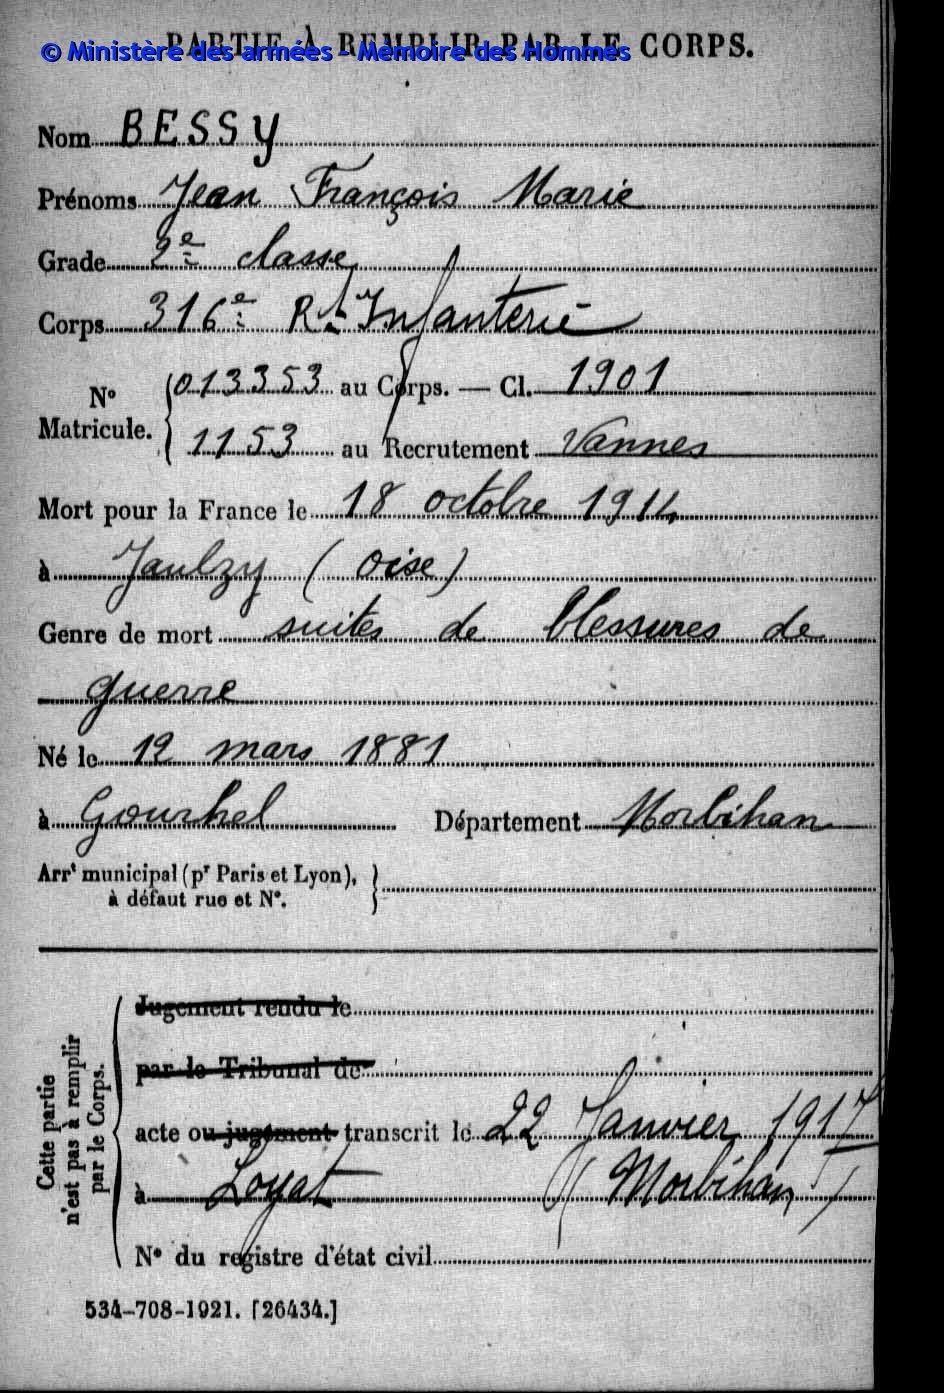 PARTIE À REMPLIR PAR LE CORPS.
© Ministère des armées - Mémoire des Hommes
Nom BESSY
Prénoms Jean François Marie
Grade 2e classe
Corps 316e Rt Infanterie
No Matricule. { 013353 au Corps. — Cl. 1901
1153 au Recrutement Vannes
Mort pour la France le 18 octobre 1914
à Jaulzy (Oise)
Genre de mort suites de blessures de
guerre
Né le 12 mars 1881
à Gourhel Département Morbihan
Arrt municipal (pr Paris et Lyon), }
à défaut rue et No.
Cette partie n'est pas à remplir par le Corps.
Jugement rendu le
par le Tribunal de
acte ou jugement transcrit le 22 Janvier 1917
à Loyat (Morbihan)
No du registre d'état civil
534-708-1921. [26434.]